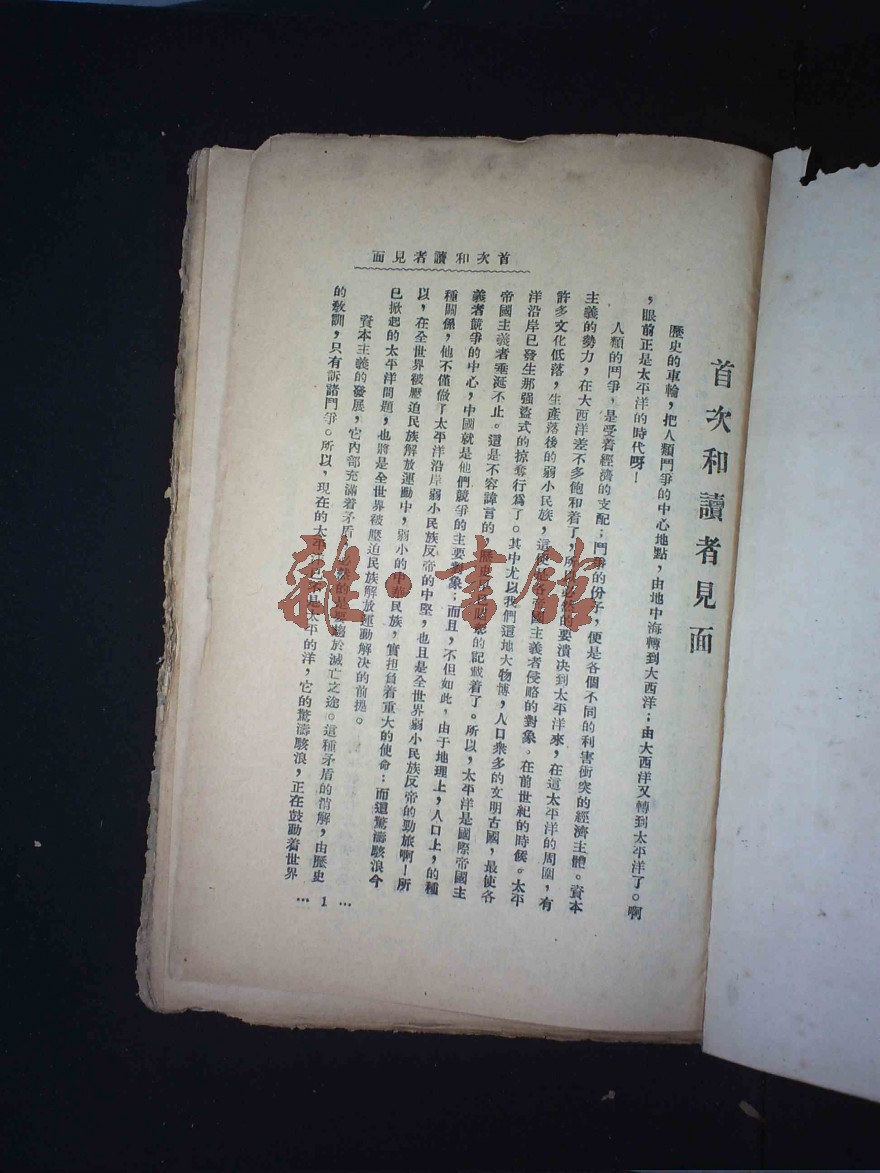 首次和讀者見面
首次和讀者見面
歷史的車輪，把人類鬥爭的中心地點，由地中海轉到大西洋；由大西洋又轉到太平洋了。啊
，眼前正是太平洋的時代呀！
人類的鬥爭，是受着經濟的支配；鬥爭的份子，便是各個不同的利害衝突的經濟主體。資本
主義的勢力，在大西洋差不多飽和着了，所以必然的要潰决到太平洋來，在這太平洋的周圍，有
許多文化低落，生產落後的弱小民族，這便是各帝國主義者侵略的對象。在前世紀的時候。太平
洋沿岸已發生那強盜式的掠奪行爲了。其中尤以我們這地大物博，人口衆多的文明古國，最使各
帝國主義者垂涎不止。這是不容諱言的，歷史的記載着了。所以，太平洋是國際帝國主
義者競爭的中心，中國就是他們競爭的主要對象；而且，不但如此，由于地理上，人口上，的種
種關係，他不僅做了太平洋沿岸弱小民族反帝的中堅，也且是全世界弱小民族反帝的勁旅啊！所
以，在全世界被壓迫民族解放運動中，弱小的中華民族，實担負着重大的使命；而這驚濤駭浪今
已掀起的太平洋問題，也將是全世界被壓迫民族解放運動解决的前提。
資本主義的發展，它內部充滿着矛盾，必然的是要趨於滅亡之途。這種矛盾的消解，由歷史
的敎訓，只有訴諸鬥爭。所以，現在的太平洋已不是太平的洋，它的驚濤駭浪，正在鼓動着世界
1
雜·書館